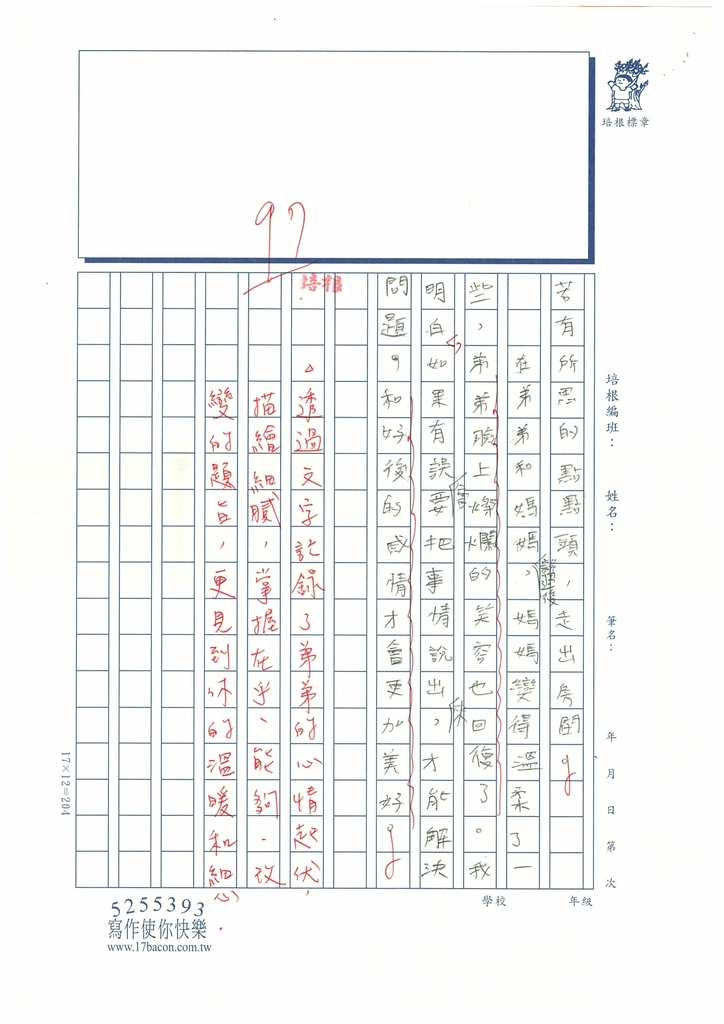 培根標章
97
培根編班：
姓名：
筆名：
年 月 日 第 次
年級
學校
若有所思的點點頭，走出房間。
在弟弟和媽媽談過後，媽媽變得溫柔了一
些，弟弟臉上燦爛的笑容也回復了。我
明白如果有誤會要把事情說出來，才能解決
問題，和好後的感情才會更加美好。
培根
△透過文字記錄了弟弟的心情起伏，
描繪細膩，掌握在乎、能夠、改
變的題旨，更見到你的溫暖和細心
17×12=204
5255393
寫作使你快樂
www.17bacon.com.tw